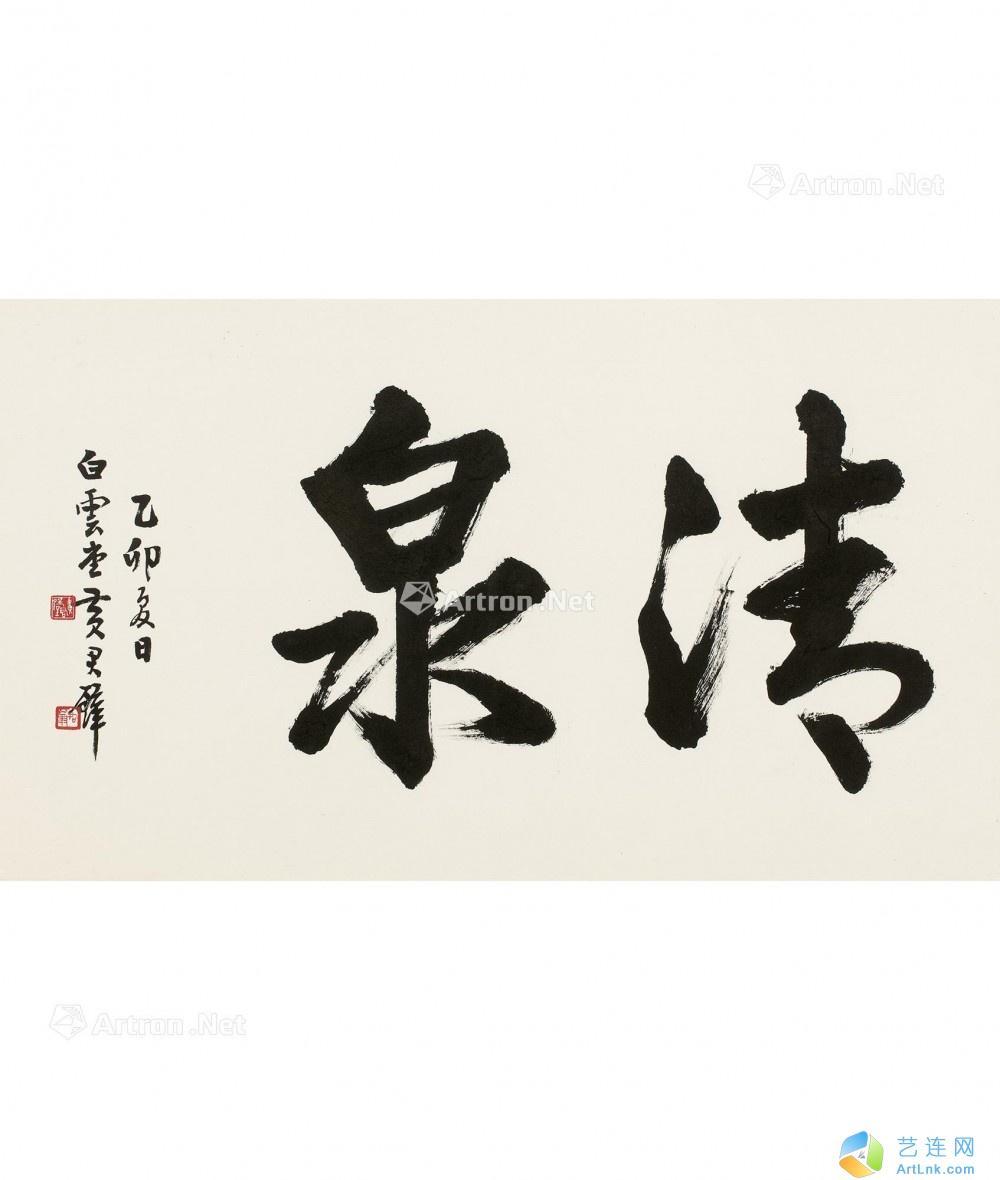 Artron.Net
清泉
乙卯夏日
白雲堂黄君璧
Artron.Net
Artron.Net
艺连网
ArtLnk.com